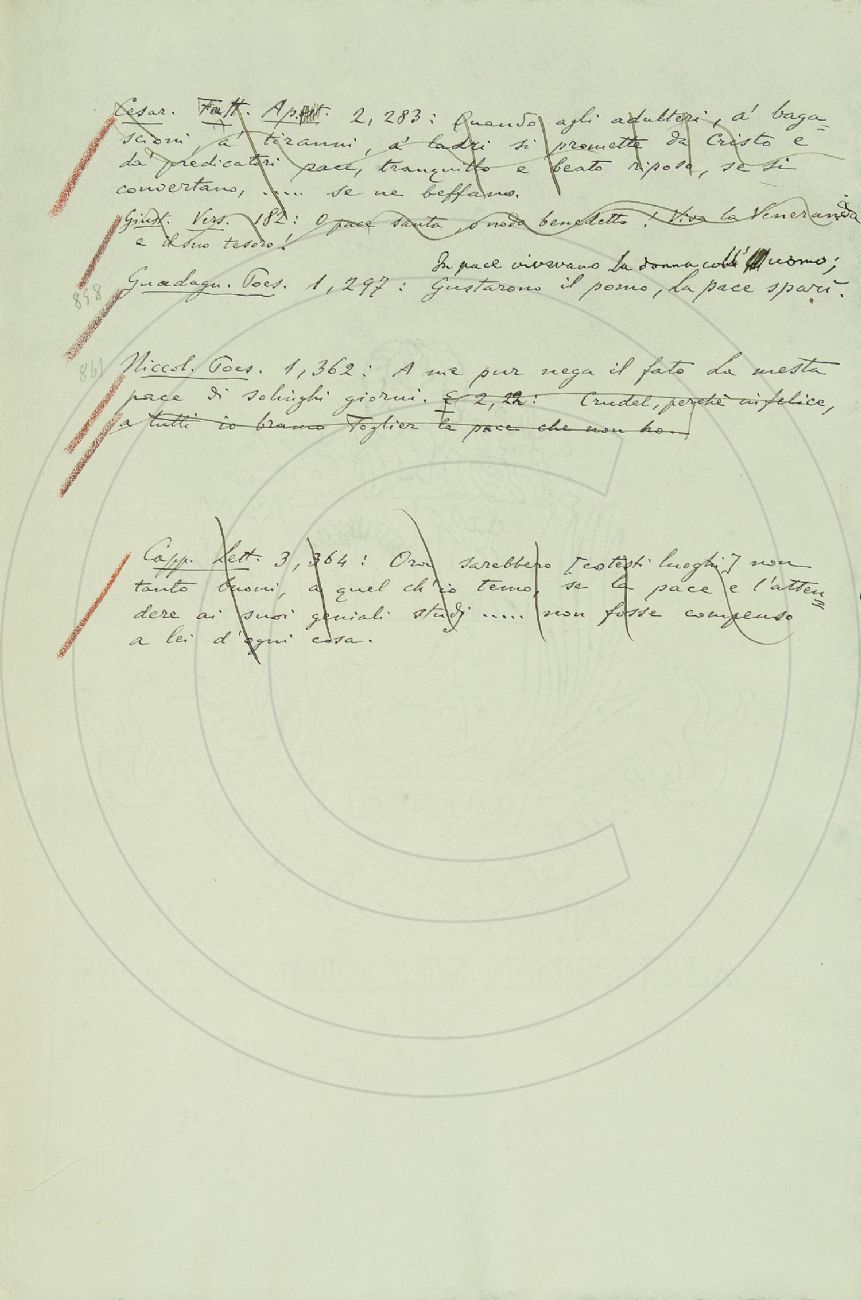 Cesar. Fatt. Apost. 2, 283: Quando agli adulteri, a' baga=
scioni, a' tiranni, a' ladri si promette da Cristo e
da' predicatori pace, tranquillo e beato riposo, se si
convertano, ..... se ne beffano.
Giust. Vers. 182: O pace santa, o nodo benedetto! Viva la Veneranda
e il suo tesoro!
In pace vivevano La donna coll' uomo;
858 Guadagn. Poes. 1, 297: Gustarono il pomo, La pace sparì.
861 Niccol. Poes. 1, 362: A me pur nega il fato La mesta
pace di solinghi giorni. E 2, 22: Crudel, perchè infelice,
a tutti io bramo Toglier la pace che non ho.
Capp. Lett. 3, 364: Ora sarebbero [cotesti luoghi] non
tanto buoni, a quel ch'io temo, se la pace e l'atten=
dere ai suoi geniali studj ..... non fosse compenso
a lei d'ogni cosa.
C